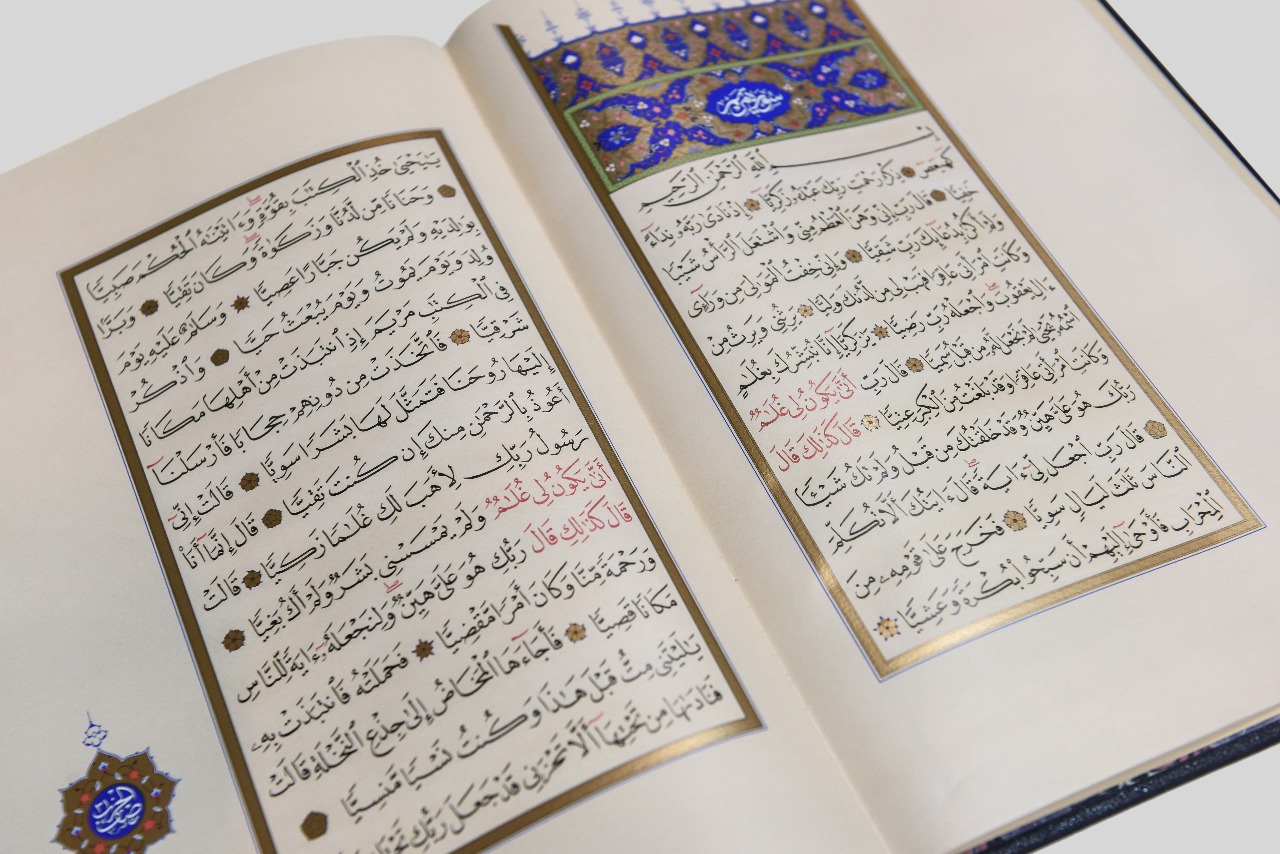 سورة مريم
بِسْمِ ٱللَّهِ ٱلرَّحْمَٰنِ ٱلرَّحِيمِ
كٓهيعٓصٓ ذِكْرُ رَحْمَتِ رَبِّكَ عَبْدَهُۥ زَكَرِيَّآ إِذْ نَادَىٰ رَبَّهُۥ نِدَآءً
خَفِيًّا قَالَ رَبِّ إِنِّي وَهَنَ ٱلْعَظْمُ مِنِّي وَٱشْتَعَلَ ٱلرَّأْسُ شَيْبًا
وَلَمْ أَكُنۢ بِدُعَآئِكَ رَبِّ شَقِيًّا وَإِنِّي خِفْتُ ٱلْمَوَٰلِيَ مِن وَرَآءِي
وَكَانَتِ ٱمْرَأَتِي عَاقِرًا فَهَبْ لِي مِن لَّدُنكَ وَلِيًّا يَرِثُنِي وَيَرِثُ مِنْ
ءَالِ يَعْقُوبَ وَٱجْعَلْهُ رَبِّ رَضِيًّا يَٰزَكَرِيَّآ إِنَّا نُبَشِّرُكَ بِغُلَٰمٍ
ٱسْمُهُۥ يَحْيَىٰ لَمْ نَجْعَل لَّهُۥ مِن قَبْلُ سَمِيًّا قَالَ رَبِّ أَنَّىٰ يَكُونُ لِي غُلَٰمٌ
وَكَانَتِ ٱمْرَأَتِي عَاقِرًا وَقَدْ بَلَغْتُ مِنَ ٱلْكِبَرِ عِتِيًّا قَالَ كَذَٰلِكَ قَالَ
رَبُّكَ هُوَ عَلَيَّ هَيِّنٌ وَقَدْ خَلَقْتُكَ مِن قَبْلُ وَلَمْ تَكُ شَيْـًٔا
قَالَ رَبِّ ٱجْعَل لِّيٓ ءَايَةً قَالَ ءَايَتُكَ أَلَّا تُكَلِّمَ
ٱلنَّاسَ ثَلَٰثَ لَيَالٍ سَوِيًّا فَخَرَجَ عَلَىٰ قَوْمِهِۦ مِنَ
ٱلْمِحْرَابِ فَأَوْحَىٰٓ إِلَيْهِمْ أَن سَبِّحُوا بُكْرَةً وَعَشِيًّا
يَٰيَحْيَىٰ خُذِ ٱلْكِتَٰبَ بِقُوَّةٍ وَءَاتَيْنَٰهُ ٱلْحُكْمَ صَبِيًّا
وَحَنَانًا مِّن لَّدُنَّا وَزَكَوٰةً وَكَانَ تَقِيًّا وَبَرًّۢا
بِوَٰلِدَيْهِ وَلَمْ يَكُن جَبَّارًا عَصِيًّا وَسَلَٰمٌ عَلَيْهِ يَوْمَ
وُلِدَ وَيَوْمَ يَمُوتُ وَيَوْمَ يُبْعَثُ حَيًّا وَٱذْكُرْ
فِي ٱلْكِتَٰبِ مَرْيَمَ إِذِ ٱنتَبَذَتْ مِنْ أَهْلِهَا مَكَانًا
شَرْقِيًّا فَٱتَّخَذَتْ مِن دُونِهِمْ حِجَابًا فَأَرْسَلْنَآ
إِلَيْهَا رُوحَنَا فَتَمَثَّلَ لَهَا بَشَرًا سَوِيًّا قَالَتْ إِنِّيٓ
أَعُوذُ بِٱلرَّحْمَٰنِ مِنكَ إِن كُنتَ تَقِيًّا قَالَ إِنَّمَآ أَنَا۠
رَسُولُ رَبِّكِ لِأَهَبَ لَكِ غُلَٰمًا زَكِيًّا قَالَتْ
أَنَّىٰ يَكُونُ لِي غُلَٰمٌ وَلَمْ يَمْسَسْنِي بَشَرٌ وَلَمْ أَكُ بَغِيًّا
قَالَ كَذَٰلِكِ قَالَ رَبُّكِ هُوَ عَلَيَّ هَيِّنٌ وَلِنَجْعَلَهُۥٓ ءَايَةً لِّلنَّاسِ
وَرَحْمَةً مِّنَّا وَكَانَ أَمْرًا مَّقْضِيًّا فَحَمَلَتْهُ فَٱنتَبَذَتْ بِهِۦ
مَكَانًا قَصِيًّا فَأَجَآءَهَا ٱلْمَخَاضُ إِلَىٰ جِذْعِ ٱلنَّخْلَةِ قَالَتْ
يَٰلَيْتَنِي مِتُّ قَبْلَ هَٰذَا وَكُنتُ نَسْيًا مَّنسِيًّا
فَنَادَىٰهَا مِن تَحْتِهَآ أَلَّا تَحْزَنِي قَدْ جَعَلَ رَبُّكِ